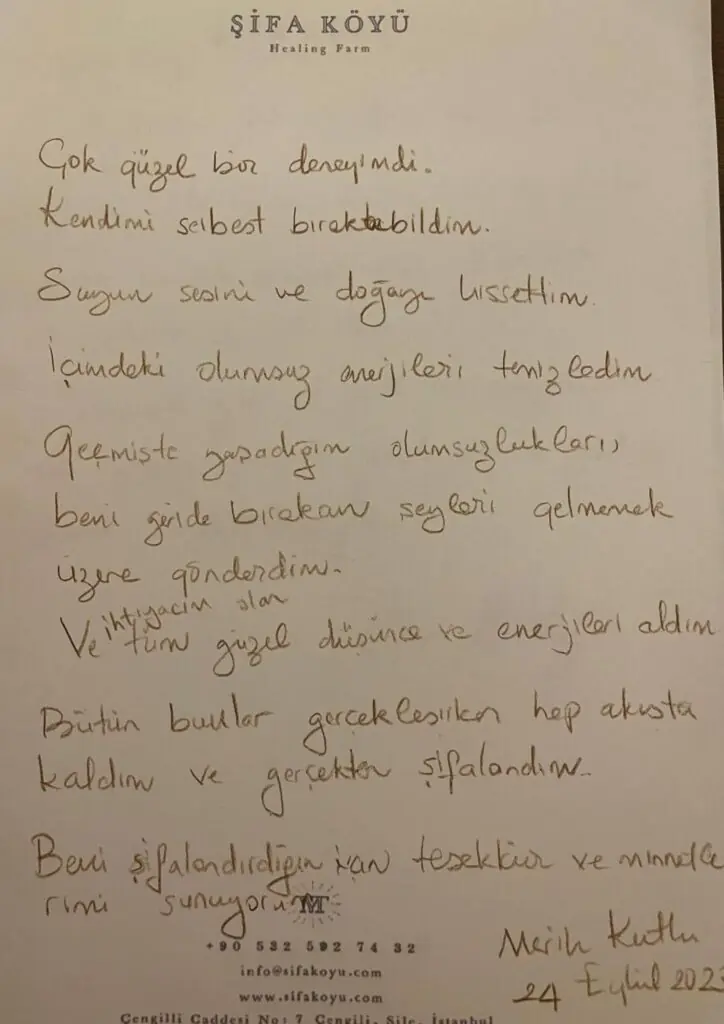 ŞİFA KÖYÜ
Healing Farm
Çok güzel bir deneyimdi.
Kendimi serbest bırakabildim.
Suyun sesini ve doğayı hissettim.
İçimdeki olumsuz enerjileri temizledim
Geçmişte yaşadığım olumsuzlukları,
beni geride bırakan şeyleri gelmemek
üzere gönderdim.
ihtiyacım olan
Ve tüm güzel düşünce ve enerjileri aldım
Bütün bunlar gerçekleşirken hep akışta
kaldım ve gerçekten şifalandım.
Beni şifalandırdığın için teşekkür ve minnetle
rimi sunuyorum
M
+90 532 592 74 32
info@sifakoyu.com
www.sifakoyu.com
Merih Kutlu
24 Eylül 2023
Çengilli Caddesi No: 7 Çengili, Şile, İstanbul